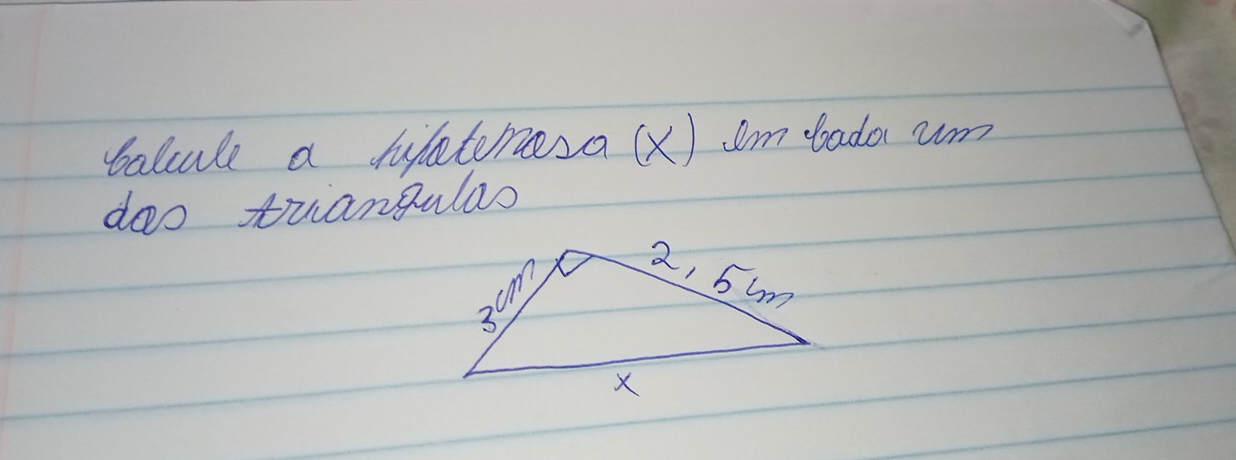 Calcule a hipotenosa (X) em cada um
dos triangulos
3cm
2,5cm
x